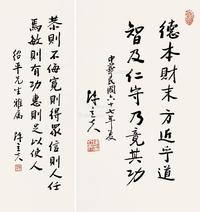 德本財末方近乎道
智及仁守乃竟其功
中華民國六十七年夏 陳立夫
恭則不侮寬則得眾信則人任
焉敏則有功惠則足以使人
紹平先生雅屬 陳立夫